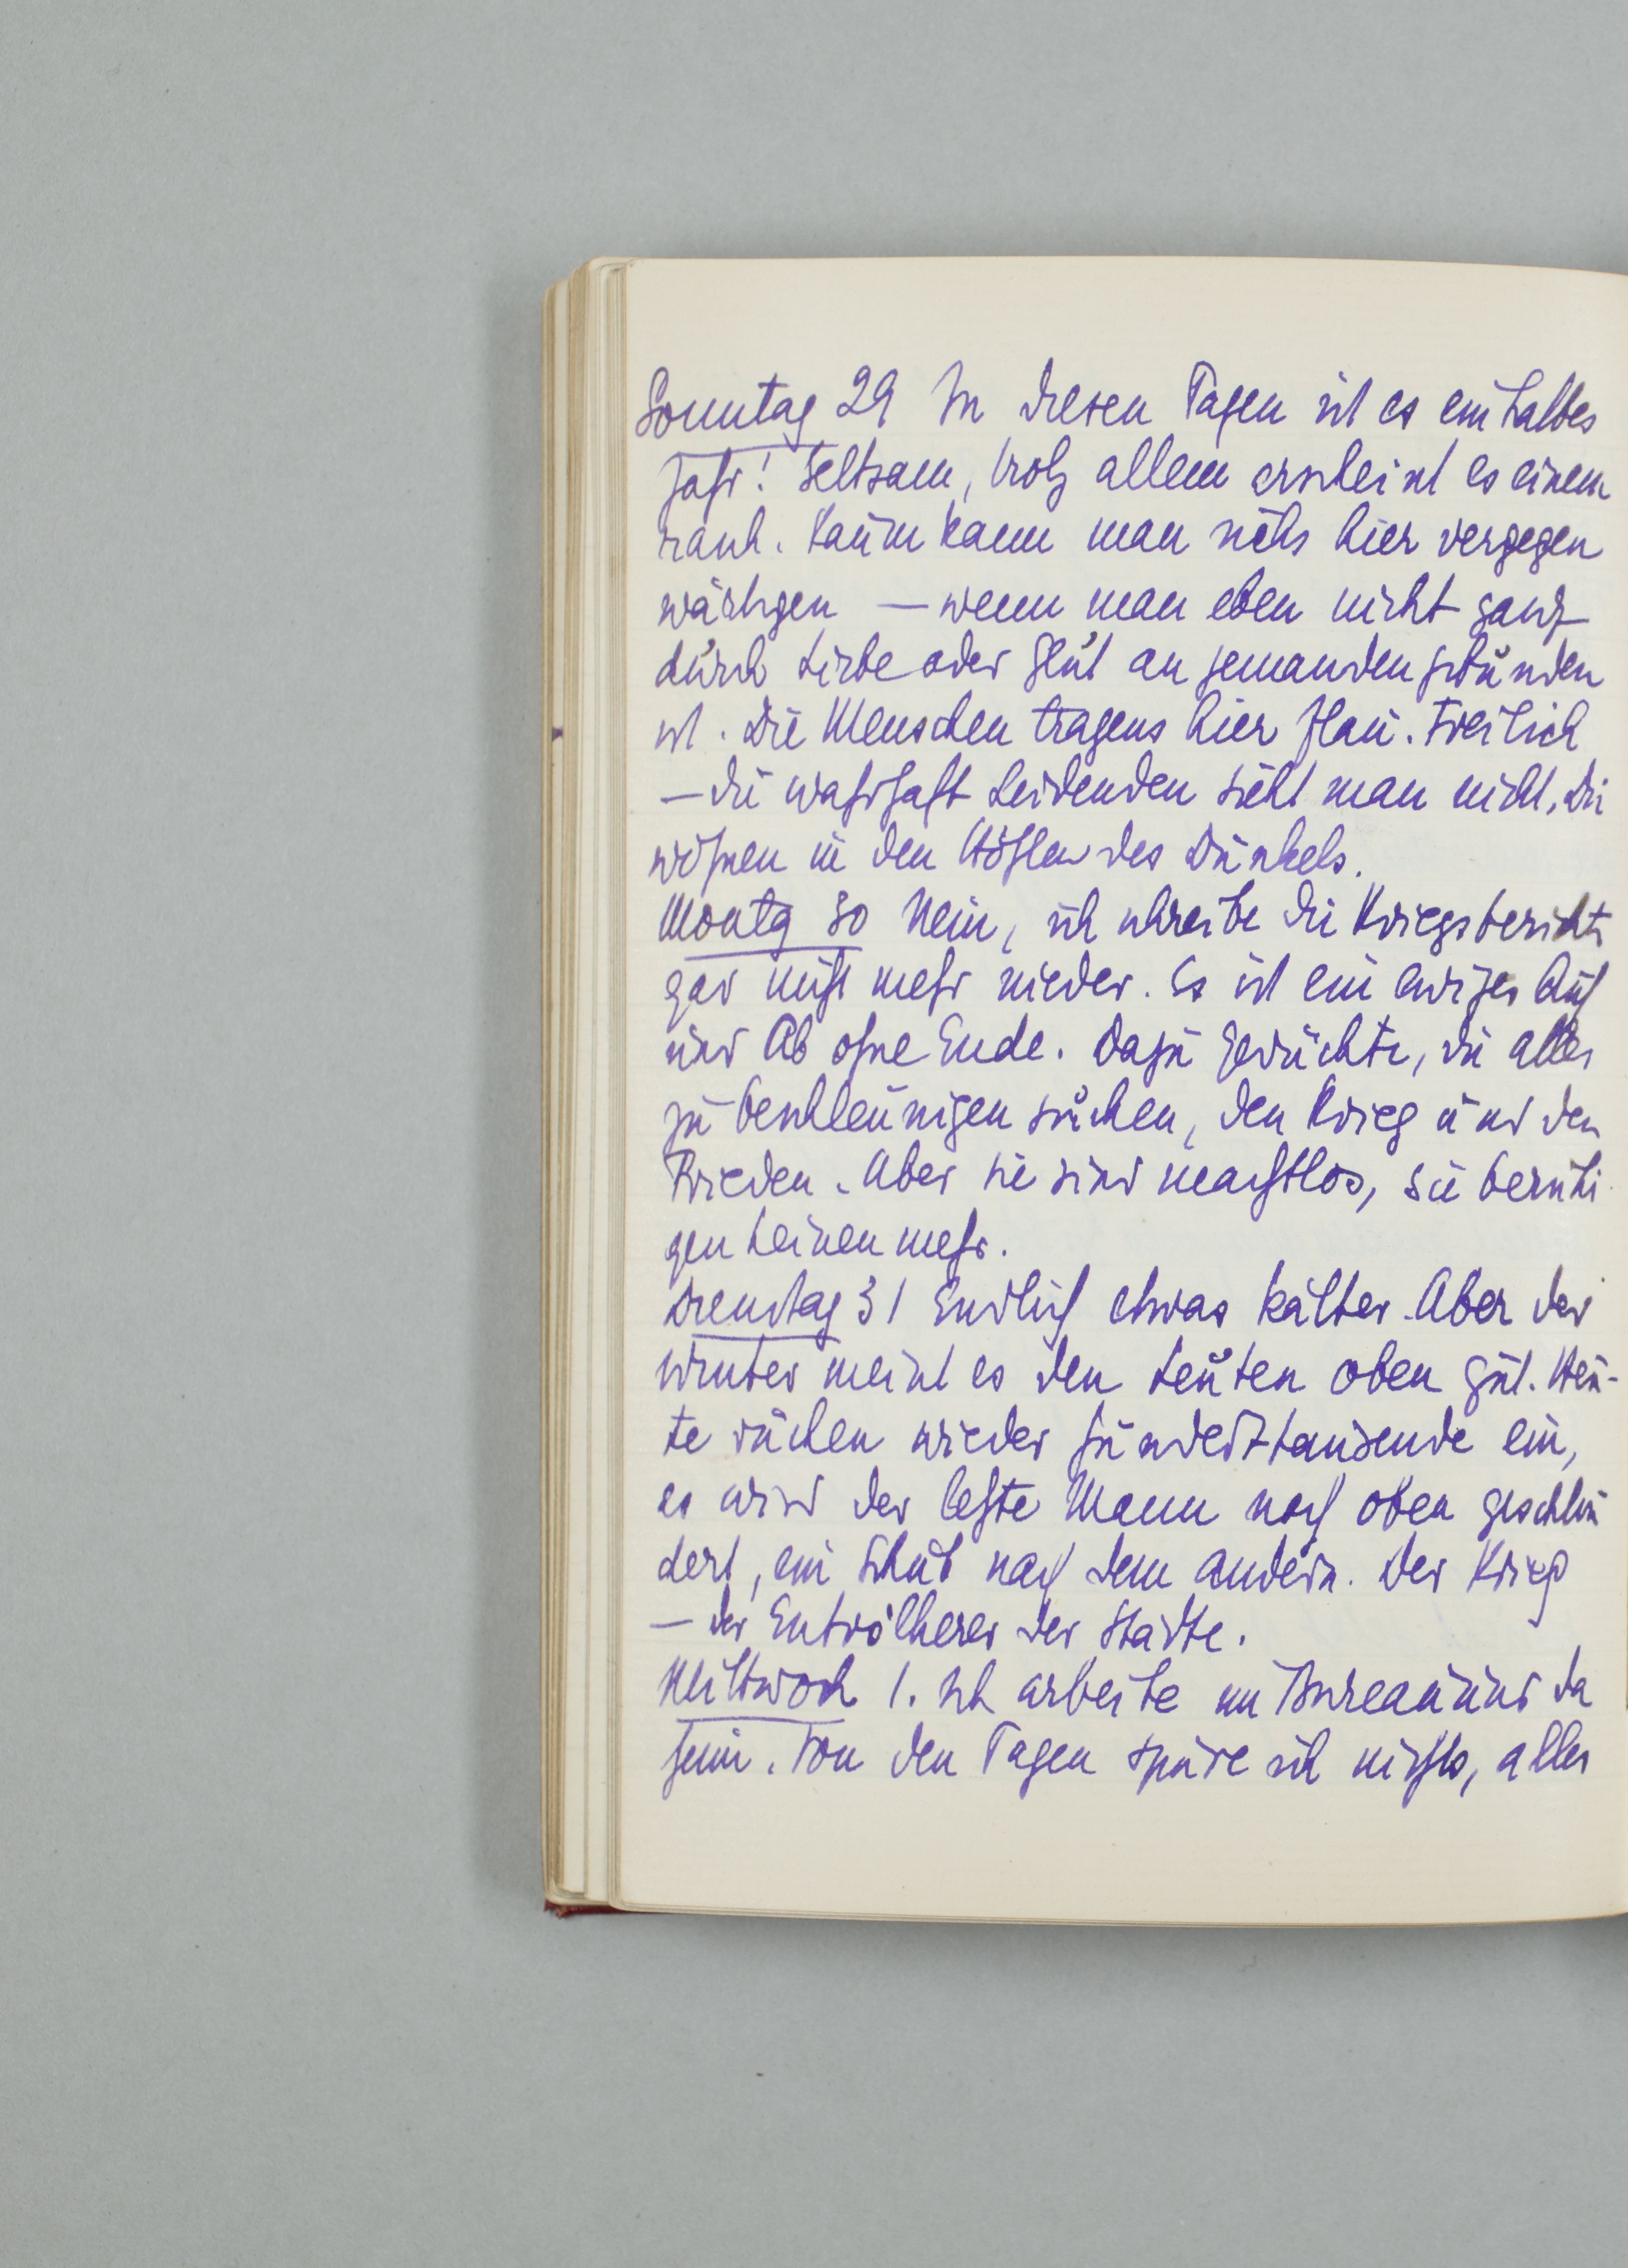 Sonntag 29 In diesen Tagen ist es ein halbes
Jahr! Seltsam, trotz allem erscheint es einem
rasch. Kaum kann man sichs hier vergegen
wärtigen – wenn man eben nicht ganz
durch Liebe oder Blut an jemanden gebunden
ist. Die Menschen tragens hier flau. Freilich
– die wahrhaft Leidenden sieht man nicht, die
wohnen in den Höhlen des Dunkels.
Montag 30 Nein, ich schreibe die Kriegsberichte
gar nicht mehr nieder. Es ist ein ewiges Auf
und Ab ohne Ende. Dazu Gerüchte, die alles
zu beschleunigen suchen, den Krieg und den
Frieden. Aber sie sind machtlos, sie beruhi
gen keinen mehr.
Dienstag 31 Endlich etwas kälter. Aber der
Winter meint es den Leuten oben gut. Heu-
te rücken wieder hunderttausende ein,
es wird der letzte Mann nach oben geschleu
dert, ein Schub nach dem andern. Der Krieg
– der Entvölkerer der Städte.
Mittwoch 1. Ich arbeite im Bureau und da
heim. Von den Tagen spüre ich nichts, alles